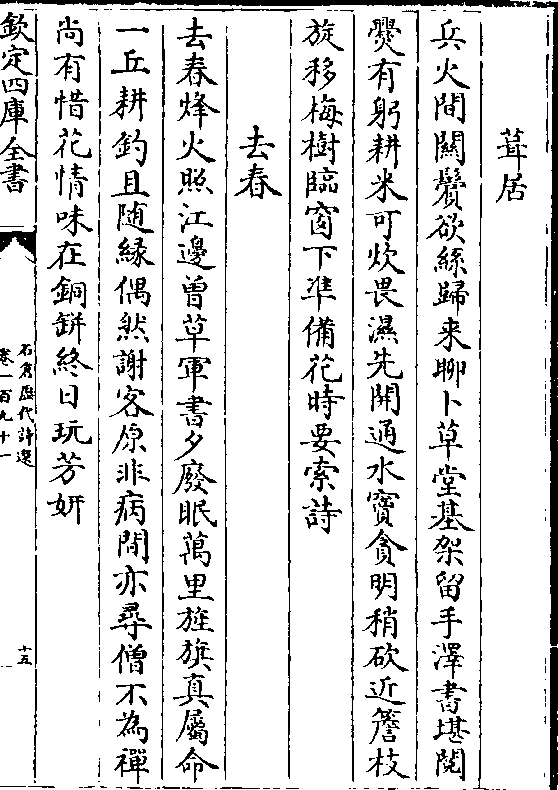 葺居
兵火間關鬢欲絲歸来聊卜草堂基架留手澤書堪閱
爨有躬耕米可炊畏濕先開通水竇貪明稍砍近簷枝
旋移梅樹臨窗下准備花時要索詩
去春
去春烽火照江邊曽草軍書夕廢眠萬里旌旗真屬命
一丘耕釣且随緣偶然謝客原非病閒亦尋僧不為禪
尚有惜花情味在銅缾終日玩芳妍
欽定四庫全書
石倉歴代詩選
卷一百九十一
十五